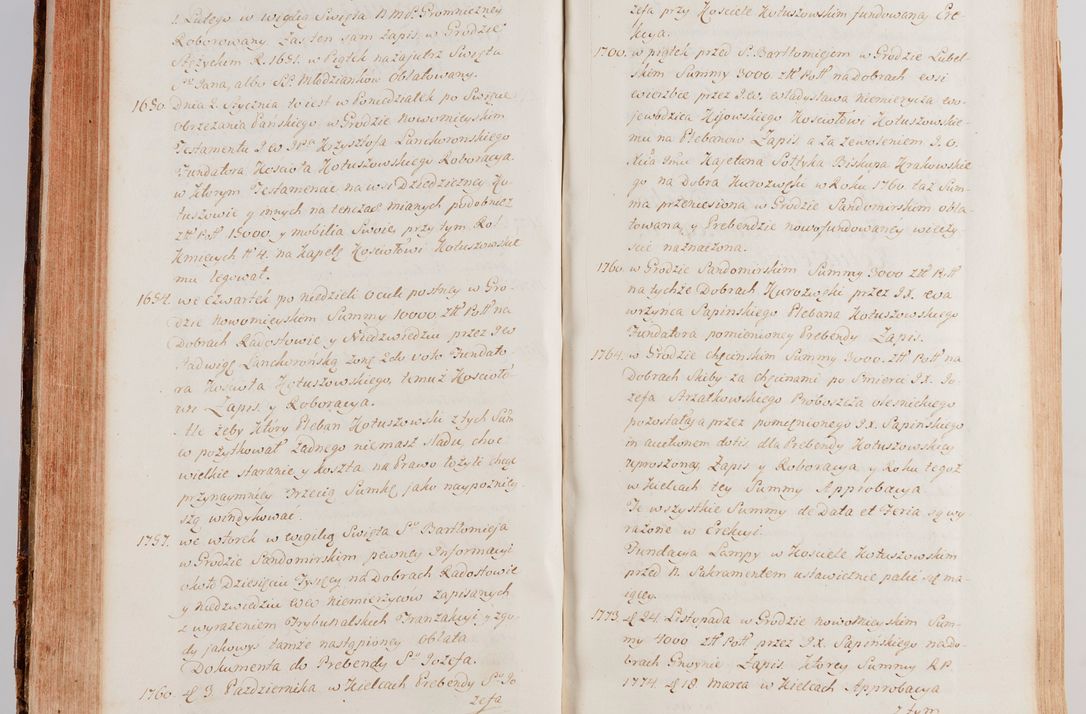 1. Lutego w Wigilią Swięta N.M.P. Gromniczney
Roborowany. Zas ten sam Zapis w Grodzie
Stężyckim R. 1651. w Piątek nazajutrz Swięta
S. Jana, albo SS. Młodzianków Oblatowany.
1650. Dnia 2. Stycznia to iest w Poniedziałek po Swięcie
Obrzezania Pańskiego w Grodzie Nowomieyskim
Testamentu JW JPa Krzysztofa Lanckorońskiego
Fundatora Kościoła Kotuszowskiego Roboracya.
w którym Testamencie na wsi Dziedziczney Ko-
tuszowie y innych na tenczas mianych podobnież
złt Poll 15000 y mobilia Swoie, przy tym Ról
Kmiących N 4. na Kapelę Kościołowi Kotuszowskie
mu legował.
1654. we Czwartek po niedzieli Oculi postney w Gro-
dzie Nowomieyskim Summy 10000 złt Poll na
Dobrach Radostowie y Niedzwiedziu przez JW
Jadwigę Lanckorońską żonę 2do voto Fundato
ra Kościoła Kotuszowskiego, temuż Kościoło
wi Zapis y Roboracya.
Ale żeby który Pleban Kotuszowski z tych Sum
co pożytkował żadnego niemasz sladu, choć
wielkie staranie y koszta na Prawo łożyli chcąc
przynaymniey Trzecią Sumkę, jako naypozniey-
szą windykować.
1757. we wtorek w wigilią Swięta S. Bartłomieja
w Grodzie Sandomirskim pewney Informacyi
około Dziesięciu Tysięcy na Dobrach Radostowie
y Niedzwiedziu WW Niemierzyców zapisanych
z wyrażeniem Trybunalskich Tranzakcyi y zgo-
dy jakowyś tamże nastąpioney Oblata.
Dokumenta do Prebendy S. Jozefa.
1760. d 3 Pazdziernika w Kielcach Prebendy S. Jo
zefa
zefa przy Kosciele Kotuszowskim fundowaney Ere
kcya.
1700. w piątek przed S. Bartłomiejem w Grodzie Lubel-
skim Summy 3000 złt Poll na dobrach wsi
Wierzbce przez J.W. Władysława Niemierycza Wo-
jewodzica Kijowskiego Kościołowi Kotuszowskie-
mu na Plebanow Zapis, a za zezwoleniem J.O.
Xcia Jmci Kajetana Sołtyka Biskupa Krakowskie
go na Dobra Kurozwęki w Roku 1760. taż Sum-
ma przeniesiona w Grodzie Sandomirskim obla-
towana, y Prebendzie nowofundowaney wieczy-
scie naznaczona.
1760. w Grodzie Sandomirskim Summy 3000 złt Poll
na tychże Dobrach Kurozwęki przez J.X. Wa
wrzyńca Sapińskiego Plebana Kotuszowskiego
Fundatora pomienioney Prebendy Zapis.
1764. w Grodzie Chęcinskim Summy 3000. złt Poll na
Dobrach Skiby za Chęcinami po Smierci J.X. Jo
zefa Strzałkowskiego Proboszcza Olesnickiego
pozostałaja przez pomienionego J.X. Sapińskiego
in auctionem dotis dla Prebendy Kotuszowskiey
uproszoney, Zapis y Roboracya, y Roku tegoż
w Kielcach tey Summy Approbacya.
Te wszystkie Summy de Data et Feria są wy-
rażone w Erekcyi.
Fundacya Lampy w Kosciele Kotuszowskim
przed N. Sakramentem ustawicznie palić się ma-
iącey.
1773. d 24. Listopada w Grodzie nowomieyskim Sum-
my 4000 złt Poll przez J.X. Sapińskiego na do-
brach Gnoynie Zapis, ktorey Summy R.P.
1774. d 18 marca w Kielcach Approbacya
z tym